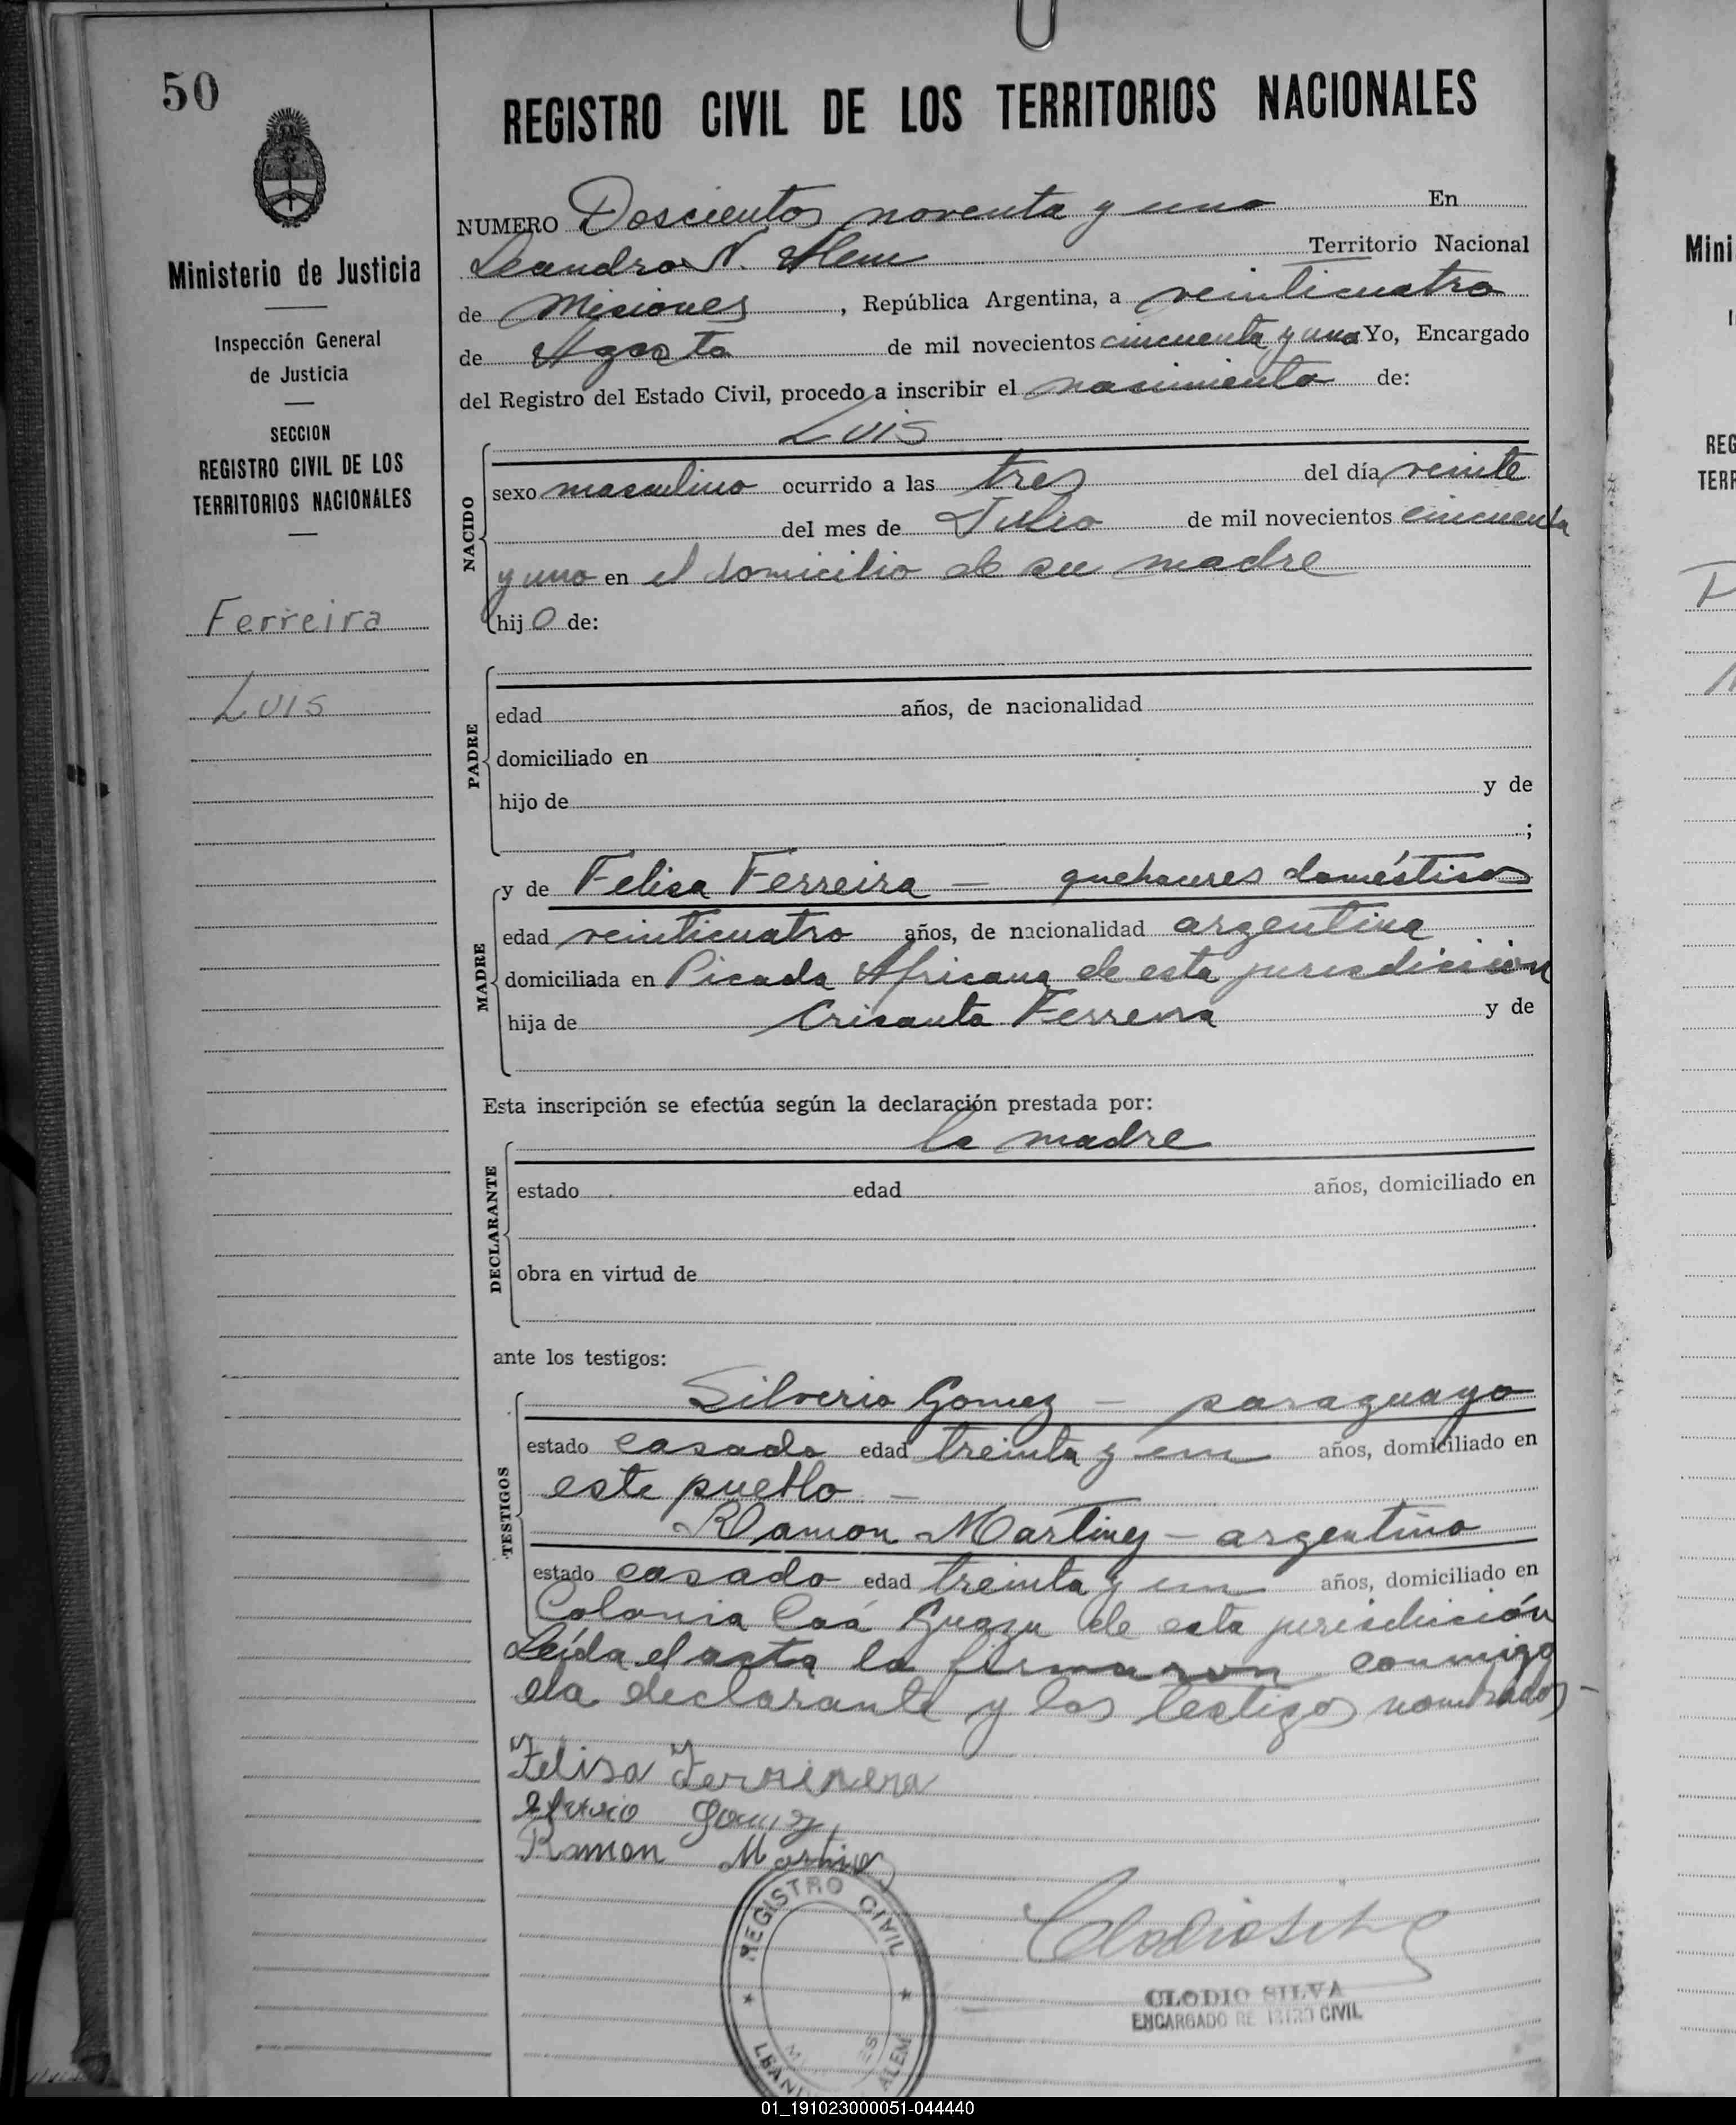 50
REGISTRO CIVIL DE LOS TERRITORIOS NACIONALES
Ministerio de Justicia
Inspección General
de Justicia
SECCION
REGISTRO CIVIL DE LOS
TERRITORIOS NACIONALES
Ferreira
Luis
NUMERO Doscientos noventa y uno En
Leandro N. Alem Territorio Nacional
de Misiones, República Argentina, a veinticuatro
de Agosto de mil novecientos cincuenta y uno Yo, Encargado
del Registro del Estado Civil, procedo a inscribir el nacimiento de:
Luis
NACIDO
sexo masculino ocurrido a las tres del día veinte
del mes de Julio de mil novecientos cincuenta
y uno en el domicilio de su madre
hijo de:
PADRE
edad años, de nacionalidad
domiciliado en
hijo de y de
;
MADRE
y de Felisa Ferreira — quehaceres domésticos
edad veinticuatro años, de nacionalidad argentina
domiciliada en Picada Africana de esta jurisdicción
hija de Crisanta Ferreira y de
Esta inscripción se efectúa según la declaración prestada por:
la madre
DECLARANTE
estado edad años, domiciliado en
obra en virtud de
ante los testigos:
TESTIGOS
Silverio Gomez — paraguayo
estado casado edad treinta y un años, domiciliado en
este pueblo —
Ramon Martinez — argentino
estado casado edad treinta y un años, domiciliado en
Colonia Caá Guazu de esta jurisdicción
Leída el acta la firmaron conmigo
la declarante y los testigos nombrados —
Felisa Ferreira
Gomez
Ramon Martinez
REGISTRO CIVIL
LEANDRO ALEM
CLODIO SILVA
ENCARGADO REGISTRO CIVIL
Mini
REG
TERR
01_191023000051-044440